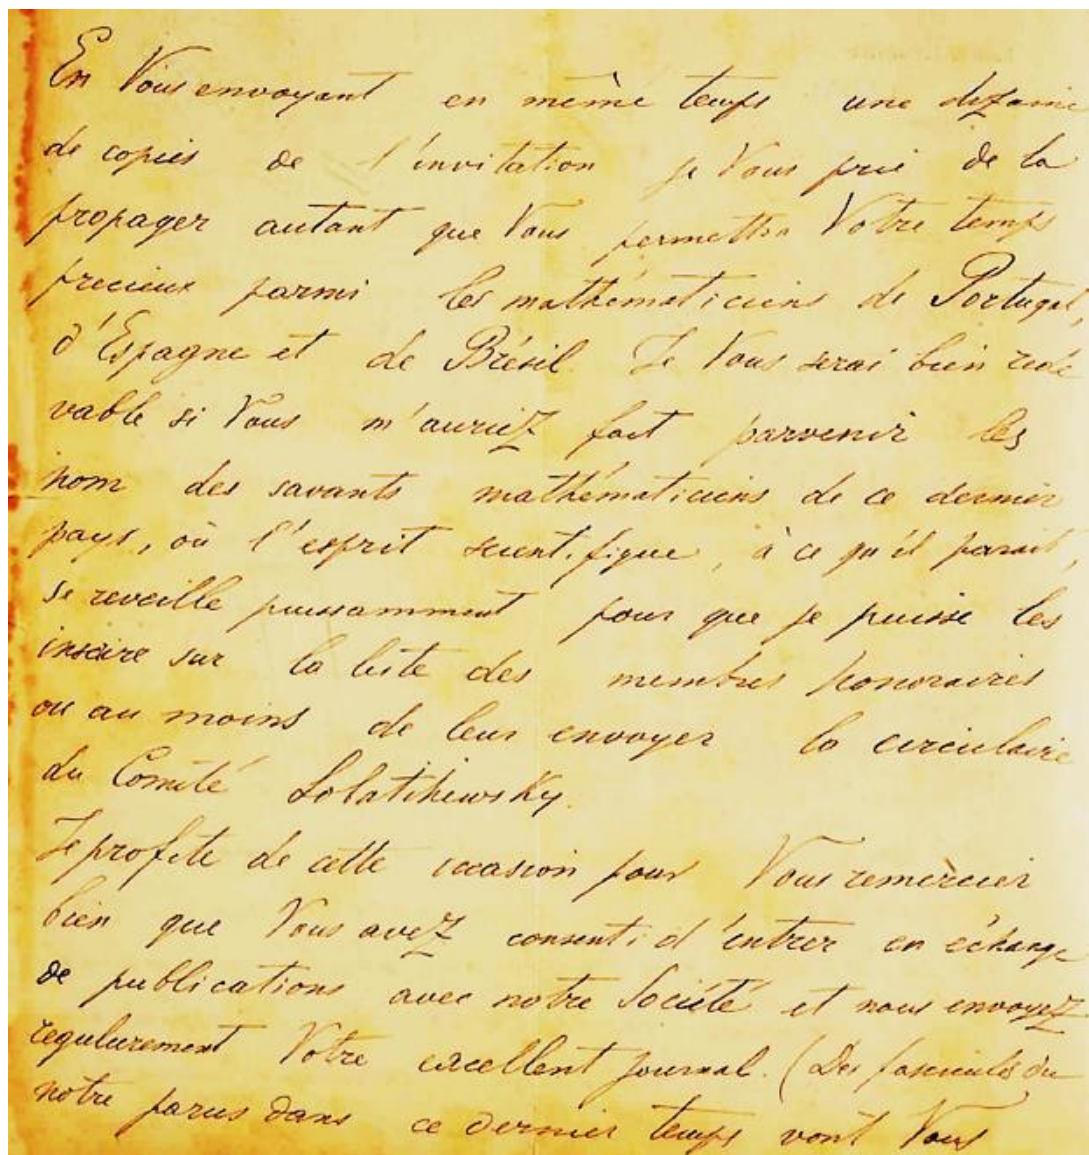 En Vous envoyant en même temps une dizaine
de copies de l'invitation je Vous prie de la
propager autant que Vous permettra Votre temps
precieux parmi les mathématiciens de Portugal,
d'Espagne et de Brésil. Je Vous serai bien rede
vable si Vous m'auriez fait parvenir les
nom des savants mathématiciens de ce dernier
pays, où l'esprit scientifique, à ce qu'il parait,
se reveille puissamment pour que je puisse les
inscire sur la liste des membres honoraires
ou au moins de leur envoyer la circulaire
du Comité Lobatchewsky.
Je profite de cette occasion pour Vous remercier
bien que Vous avez consenti d'entrer en échange
de publications avec notre Société et nous envoyez
regulierement Votre excellent journal. (Des fascicules du
notre parus dans ce dernier temps vont Vous